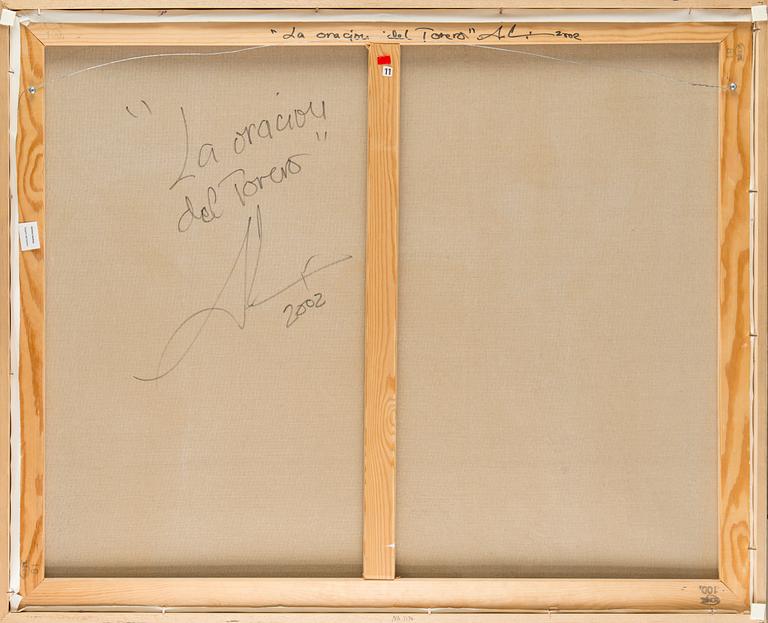 "La oracion del Torero" 2002
11
"La oracion
del Torero"
2002
100